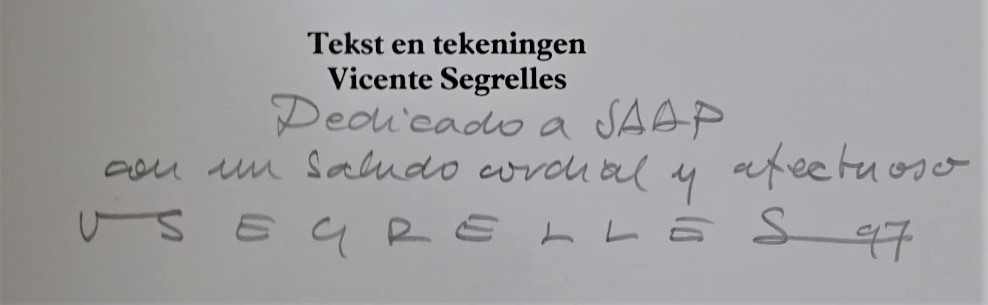 Tekst en tekeningen
Vicente Segrelles
Dedicado a SAAP
con un saludo cordial y afectuoso
V SEGRELLES 97